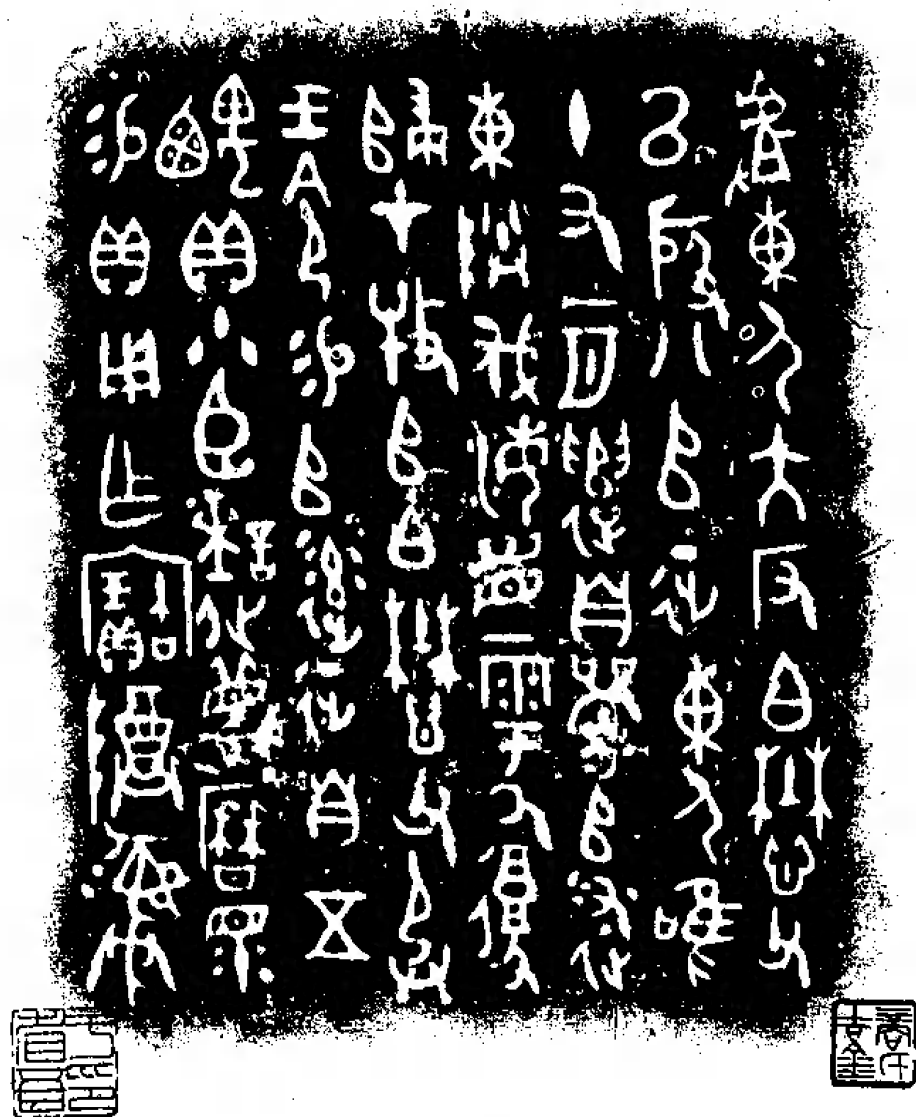 𠭯東尸大反白懋父
㠯殷八𠂤征東尸唯
十又一月遣自𩰬𠂤述
東陕伐海眉雩厥復
歸才牧𠂤白懋父承
王令易𠂤率征自五
齵貝小臣𧫊蔑曆眔
易貝用乍寶尊彝